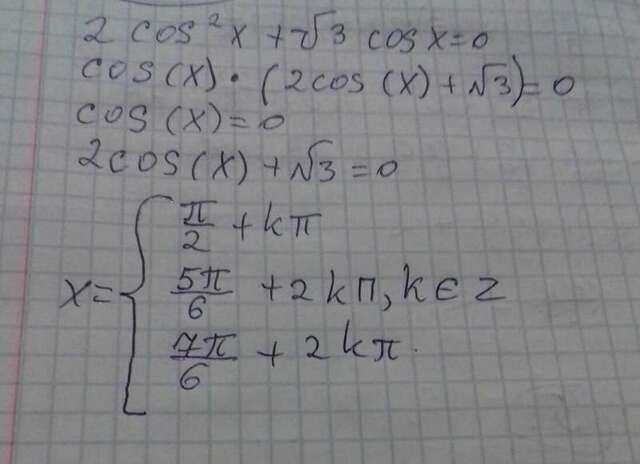 2 cos²x + √3 cosx=0
cos(x)·(2cos(x)+√3)=0
cos(x)=0
2cos(x)+√3=0
π/2 + kπ
x={ 5π/6 + 2kπ, k∈Z
7π/6 + 2kπ.